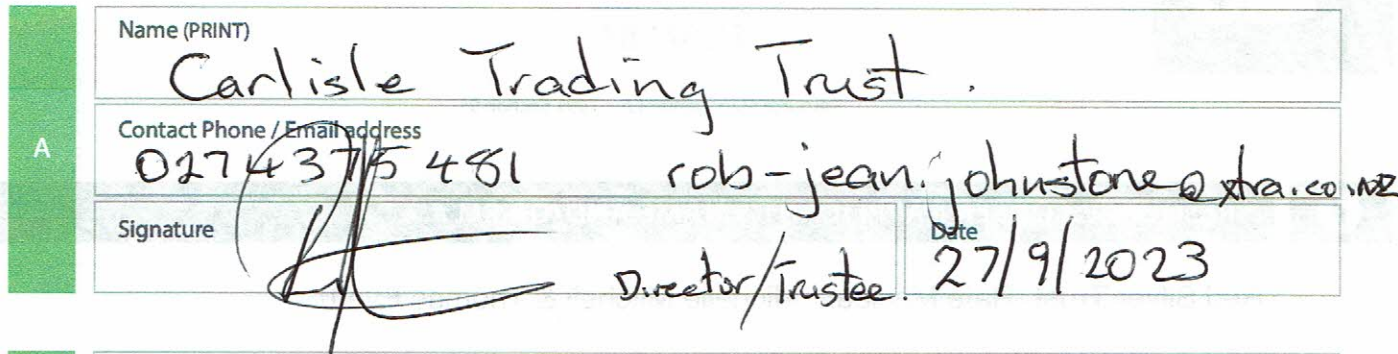 Name (PRINT)
Carlisle Trading Trust.
A
Contact Phone / Email address
0274375481 rob-jean.johnstone@xtra.co.nz
Signature
Director/Trustee.
Date
27/9/2023